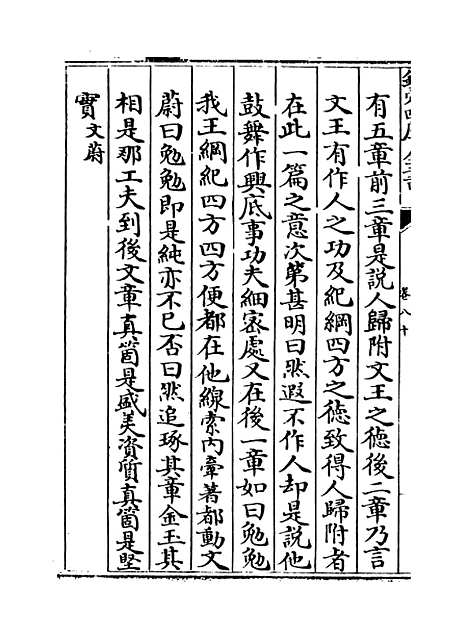 有五章前三章是説人歸附文王之德後二章乃言
文王有作人之功及紀綱四方之德致得人歸附者
在此一篇之意次第甚明曰然遐不作人却是説他
鼓舞作興底事功夫細密處又在後一章如曰勉勉
我王綱紀四方四方便都在他線索内牽著都動文
蔚曰勉勉即是純亦不已否曰然追琢其章金玉其
相是那工夫到後文章真箇是盛美資質真箇是堅
實文蔚
卷八十